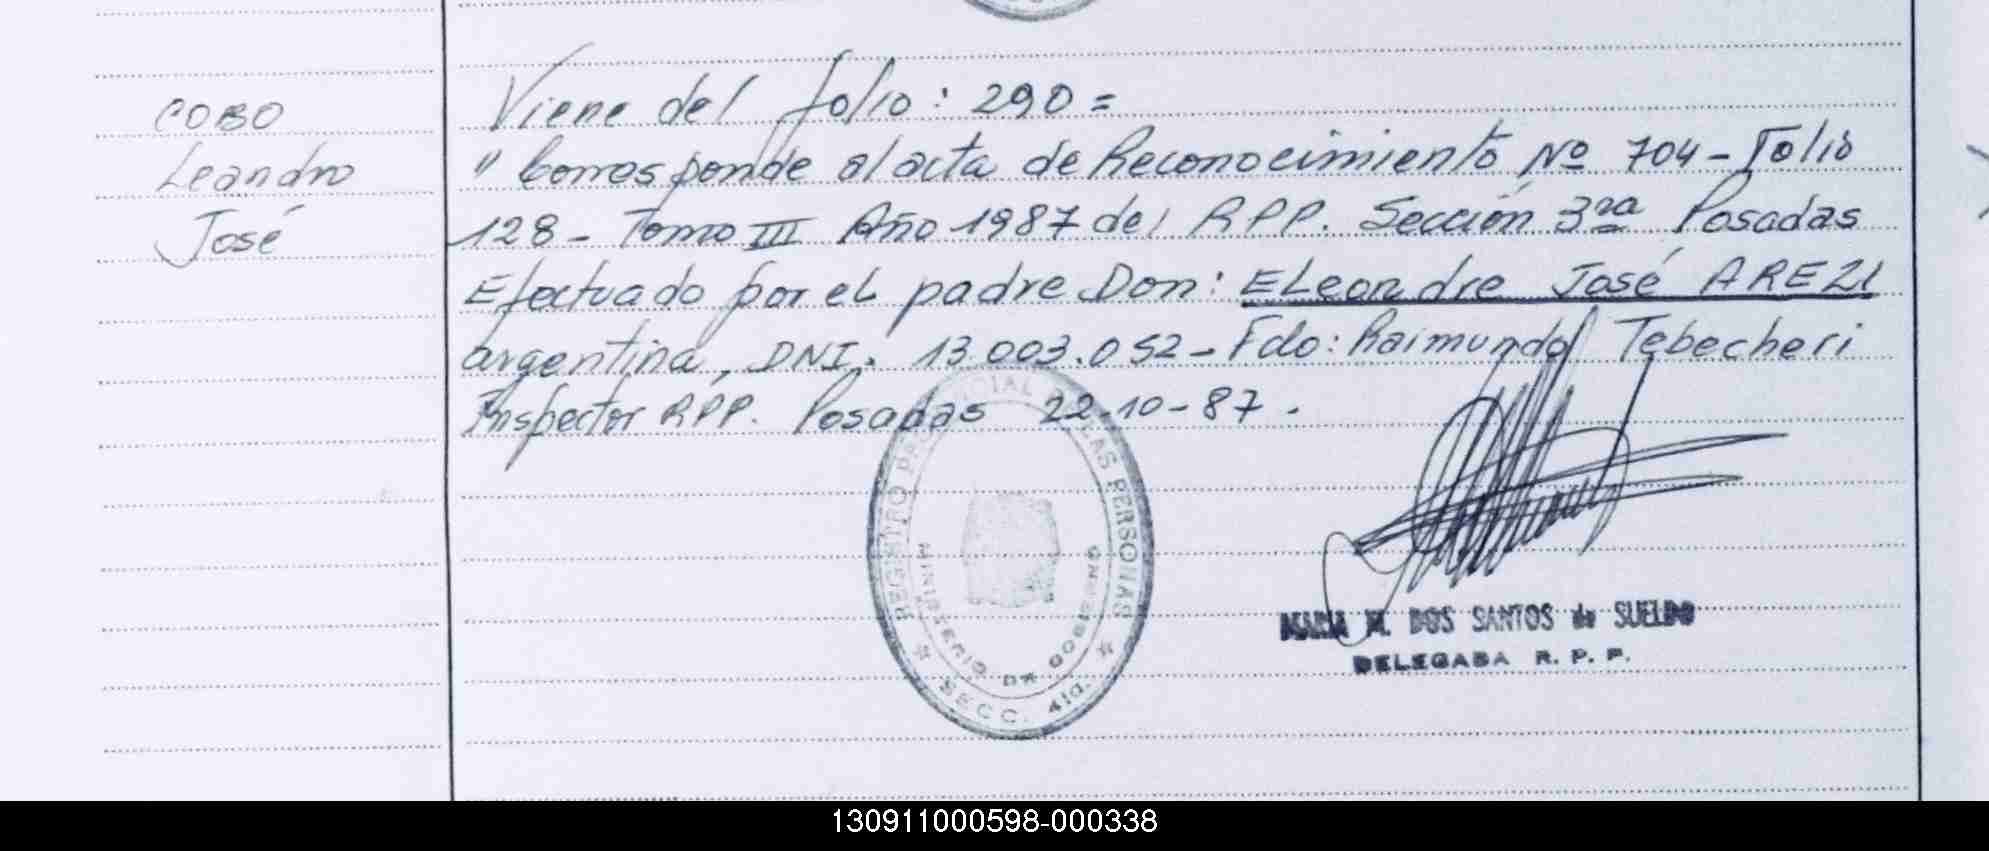 COBO
Leandro
José
Viene del folio: 290=
" Corresponde al acta de Reconocimiento Nº 704 - Folio
128 - Tomo III Año 1987 del RPP. Sección 3ra Posadas
Efectuado por el padre Don: ELeandre José AREZI
argentina, DNI. 13.003.052 - Fdo: Raimundo Tebecheri
Inspector RPP. Posadas 22-10-87.
REGISTRO PROVINCIAL DE LAS PERSONAS
MINISTERIO DE GOBIERNO
SECC. 4ta.
MARIA M. DOS SANTOS de SUELDO
DELEGADA R. P. P.
130911000598-000338